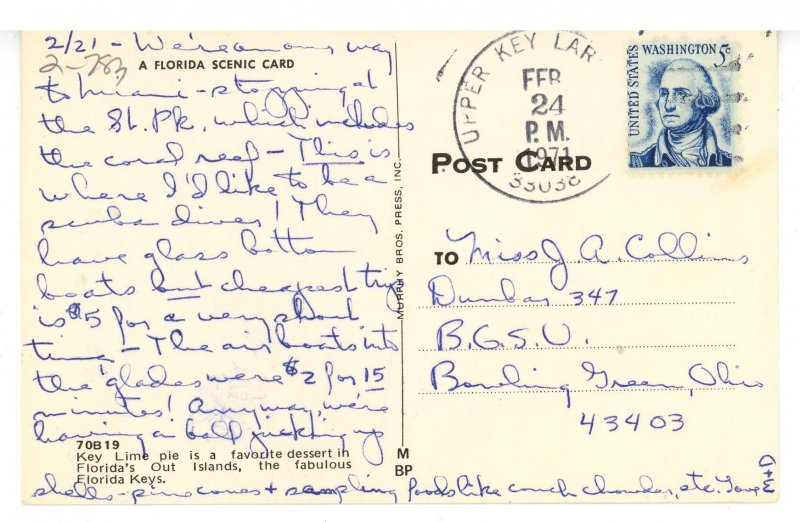 2/21 - We're on our way
2-783
A FLORIDA SCENIC CARD
to Miami - stopping at
the St. Pk. which includes
the coral reef - This is
where I'd like to be a
scuba diver! They
have glass bottom
boats but cheapest trip
is $5 for a very short
time - The air boats into
the 'glades were $2 for 15
minutes! Anyway, we're
having a ball picking up
70B19
Key Lime pie is a favorite dessert in
Florida's Out Islands, the fabulous
Florida Keys.
shells - pine cones + sampling foods like conch chowder, etc. Love
D+M
MURPHY BROS. PRESS, INC.
M
BP
UPPER KEY LAR
FEB
24
P. M.
1971
33036
UNITED STATES
WASHINGTON 5c
POST CARD
TO Miss J. A. Collins
Dunbar 347
B.G.S.U.
Bowling Green, Ohio
43403